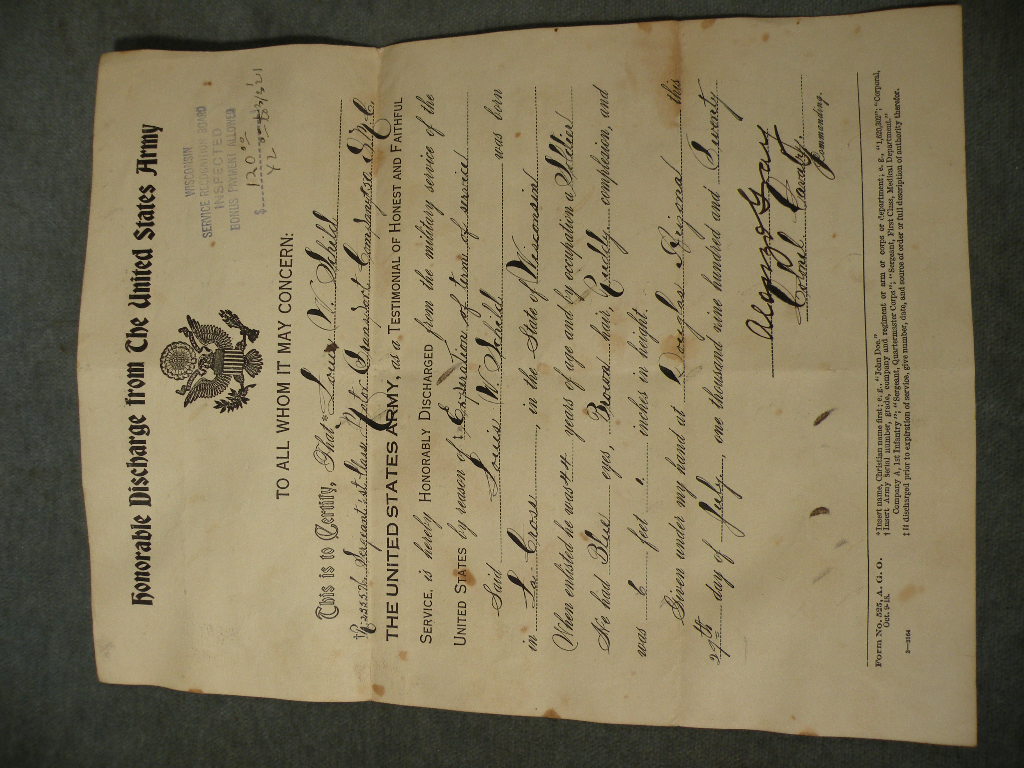 Honorable Discharge from The United States Army
WISCONSIN
SERVICE RECOGNITION BOARD
INSPECTED
BONUS PAYMENT ALLOWED
$ 120 00
TO ALL WHOM IT MAY CONCERN:
This is to Certify, That* Louis W. Scheld
Sergeant 1st Class Transport Company
THE UNITED STATES ARMY, as a TESTIMONIAL OF HONEST AND FAITHFUL
SERVICE, is hereby HONORABLY DISCHARGED from the military service of the
UNITED STATES by reason of‡ Expiration of term of service
Said Louis W. Scheld was born
in La Crosse, in the State of Wisconsin
When enlisted he was 44 years of age and by occupation a Soldier
He had Blue eyes, Brown hair, Ruddy complexion, and
was 6 feet inches in height.
Given under my hand at Douglas Arizona this
29th day of July, one thousand nine hundred and Twenty
Alonzo Gray
Colonel Cavalry.
Commanding.
Form No. 525, A. G. O.
Oct. 9-18.
3—3164
*Insert name, Christian name first; e. g., "John Doe."
†Insert Army serial number, grade, company and regiment or arm or corps or department; e. g., "1,620,302"; "Corporal,
Company A, 1st Infantry"; "Sergeant, Quartermaster Corps"; "Sergeant, First Class, Medical Department."
‡If discharged prior to expiration of service, give number, date, and source of order or full description of authority therefor.